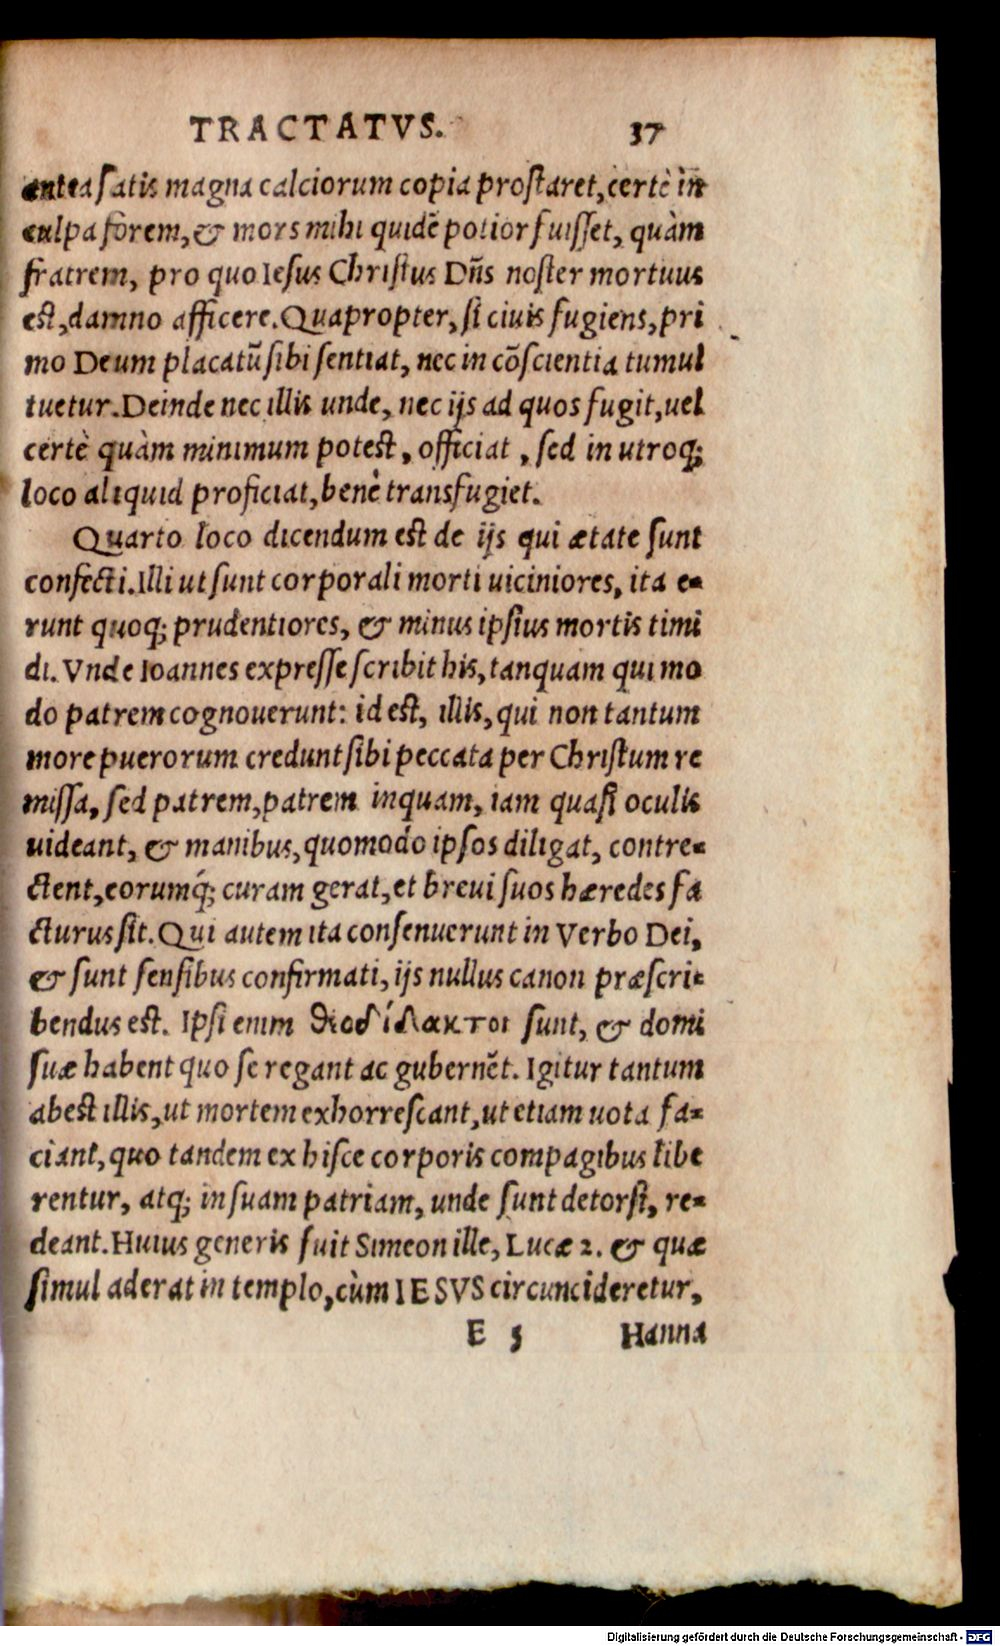 TRACTATVS. 37
antea satis magna calciorum copia prostaret, certè in
culpa forem, & mors mihi quidẽ potior fuisset, quàm
fratrem, pro quo Iesus Christus Dñs noster mortuus
est, damno afficere. Quapropter, si ciuis fugiens, pri
mo Deum placatũ sibi sentiat, nec in cõscientia tumul
tuetur. Deinde nec illis unde, nec ijs ad quos fugit, uel
certè quàm minimum potest, officiat, sed in utroq;
loco aliquid proficiat, benè transfugiet.
Quarto loco dicendum est de ijs qui ætate sunt
confecti. Illi ut sunt corporali morti uiciniores, ita e-
runt quoq; prudentiores, & minus ipsius mortis timi
di. Vnde Ioannes expresse scribit his, tanquam qui mo
do patrem cognouerunt: id est, illis, qui non tantum
more puerorum credunt sibi peccata per Christum re
missa, sed patrem, patrem inquam, iam quasi oculis
uideant, & manibus, quomodo ipsos diligat, contre-
ctent, eorumq́; curam gerat, et breui suos hæredes fa
cturus sit. Qui autem ita consenuerunt in Verbo Dei,
& sunt sensibus confirmati, ijs nullus canon præscri-
bendus est. Ipsi enim θιοδίδακτοι sunt, & domi
suæ habent quo se regant ac gubernẽt. Igitur tantum
abest illis, ut mortem exhorrescant, ut etiam uota fa-
ciant, quo tandem ex hisce corporis compagibus libe
rentur, atq; in suam patriam, unde sunt detorsi, re-
deant. Huius generis fuit Simeon ille, Lucæ 2. & quæ
simul aderat in templo, cùm IESVS circuncideretur,
E 5 Hanna
Digitalisierung gefördert durch die Deutsche Forschungsgemeinschaft - DFG